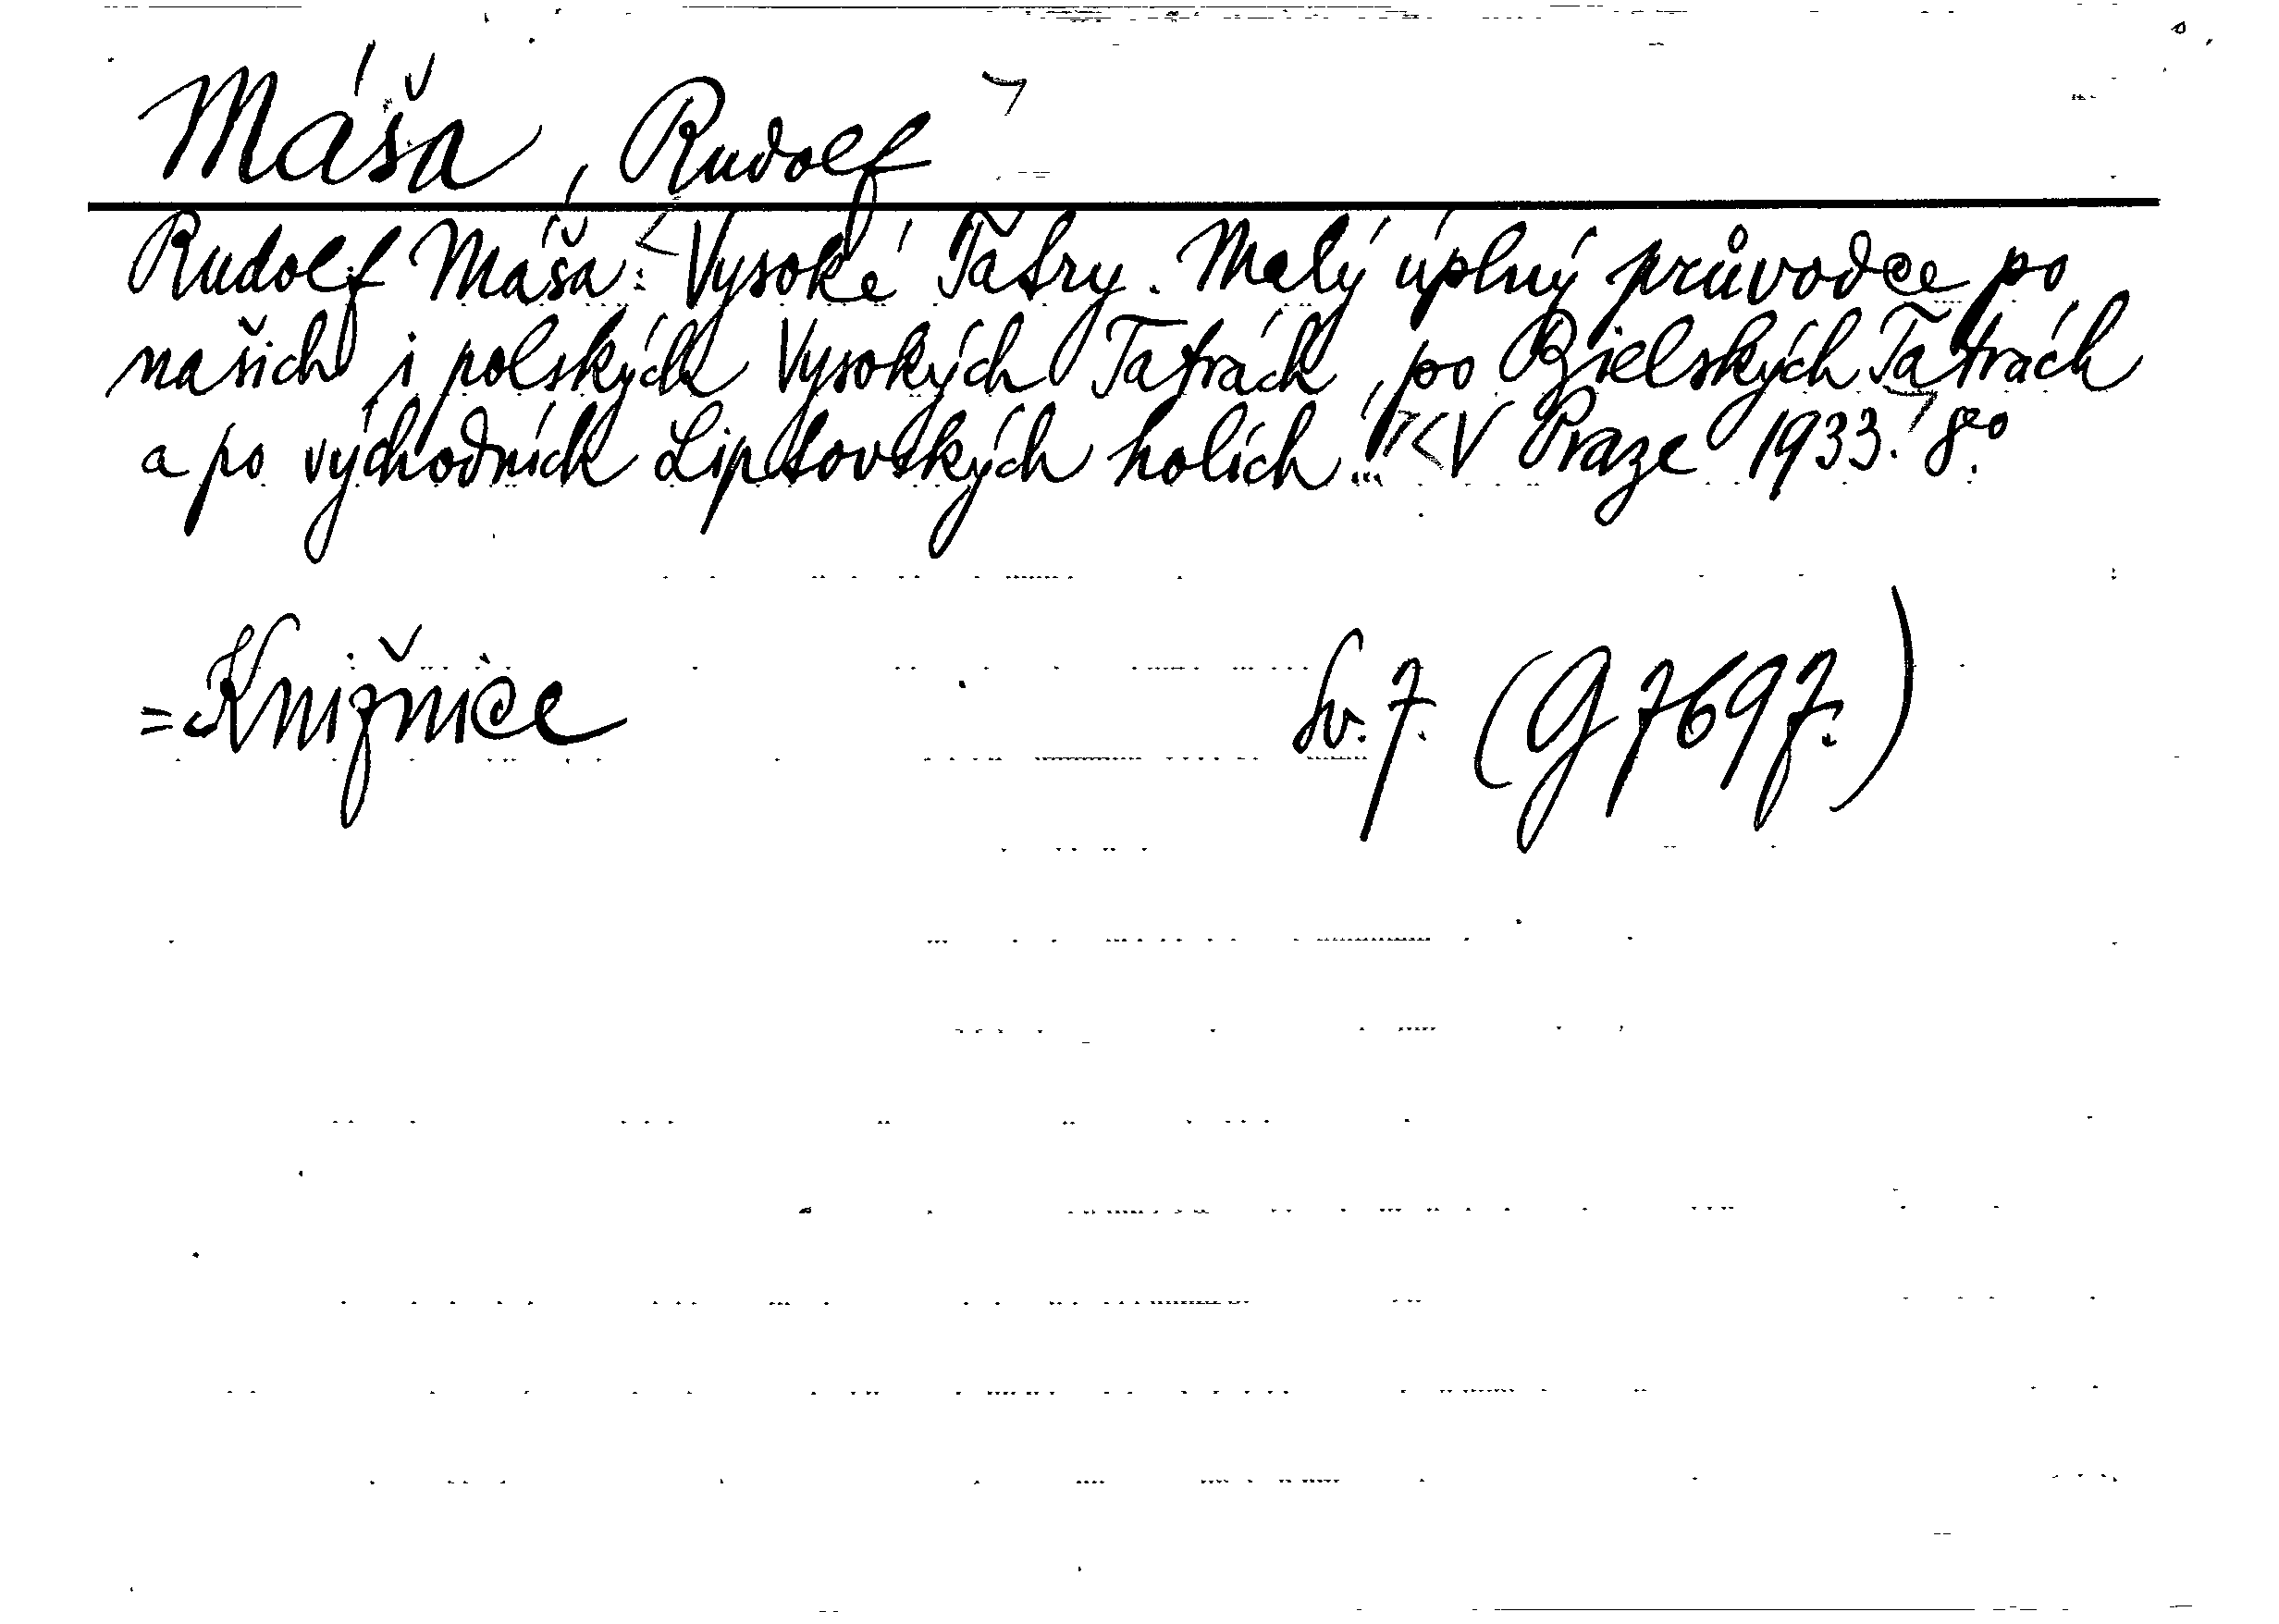 Máša, Rudolf
Rudolf Máša: Vysoké Tatry. Malý úplný průvodce po
našich i polských Vysokých Tatrách, po Bielských Tatrách
a po východních Liptovských holích... V Praze 1933. 8°.
=Knižnice Sv. 7. (G 7697.)